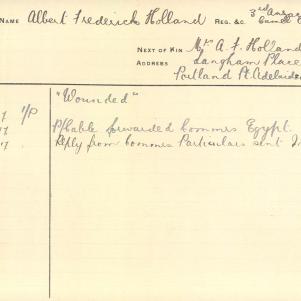 NAME Albert Frederick Holland REG. &C. 3rd
NEXT OF KIN A. F. Holland
ADDRESS Langham Place
Portland Pl. Adelaide
"Wounded"
7 1/P P/Cable forwarded Commrs Egypt.
7 Reply from Commrs Particulars sent